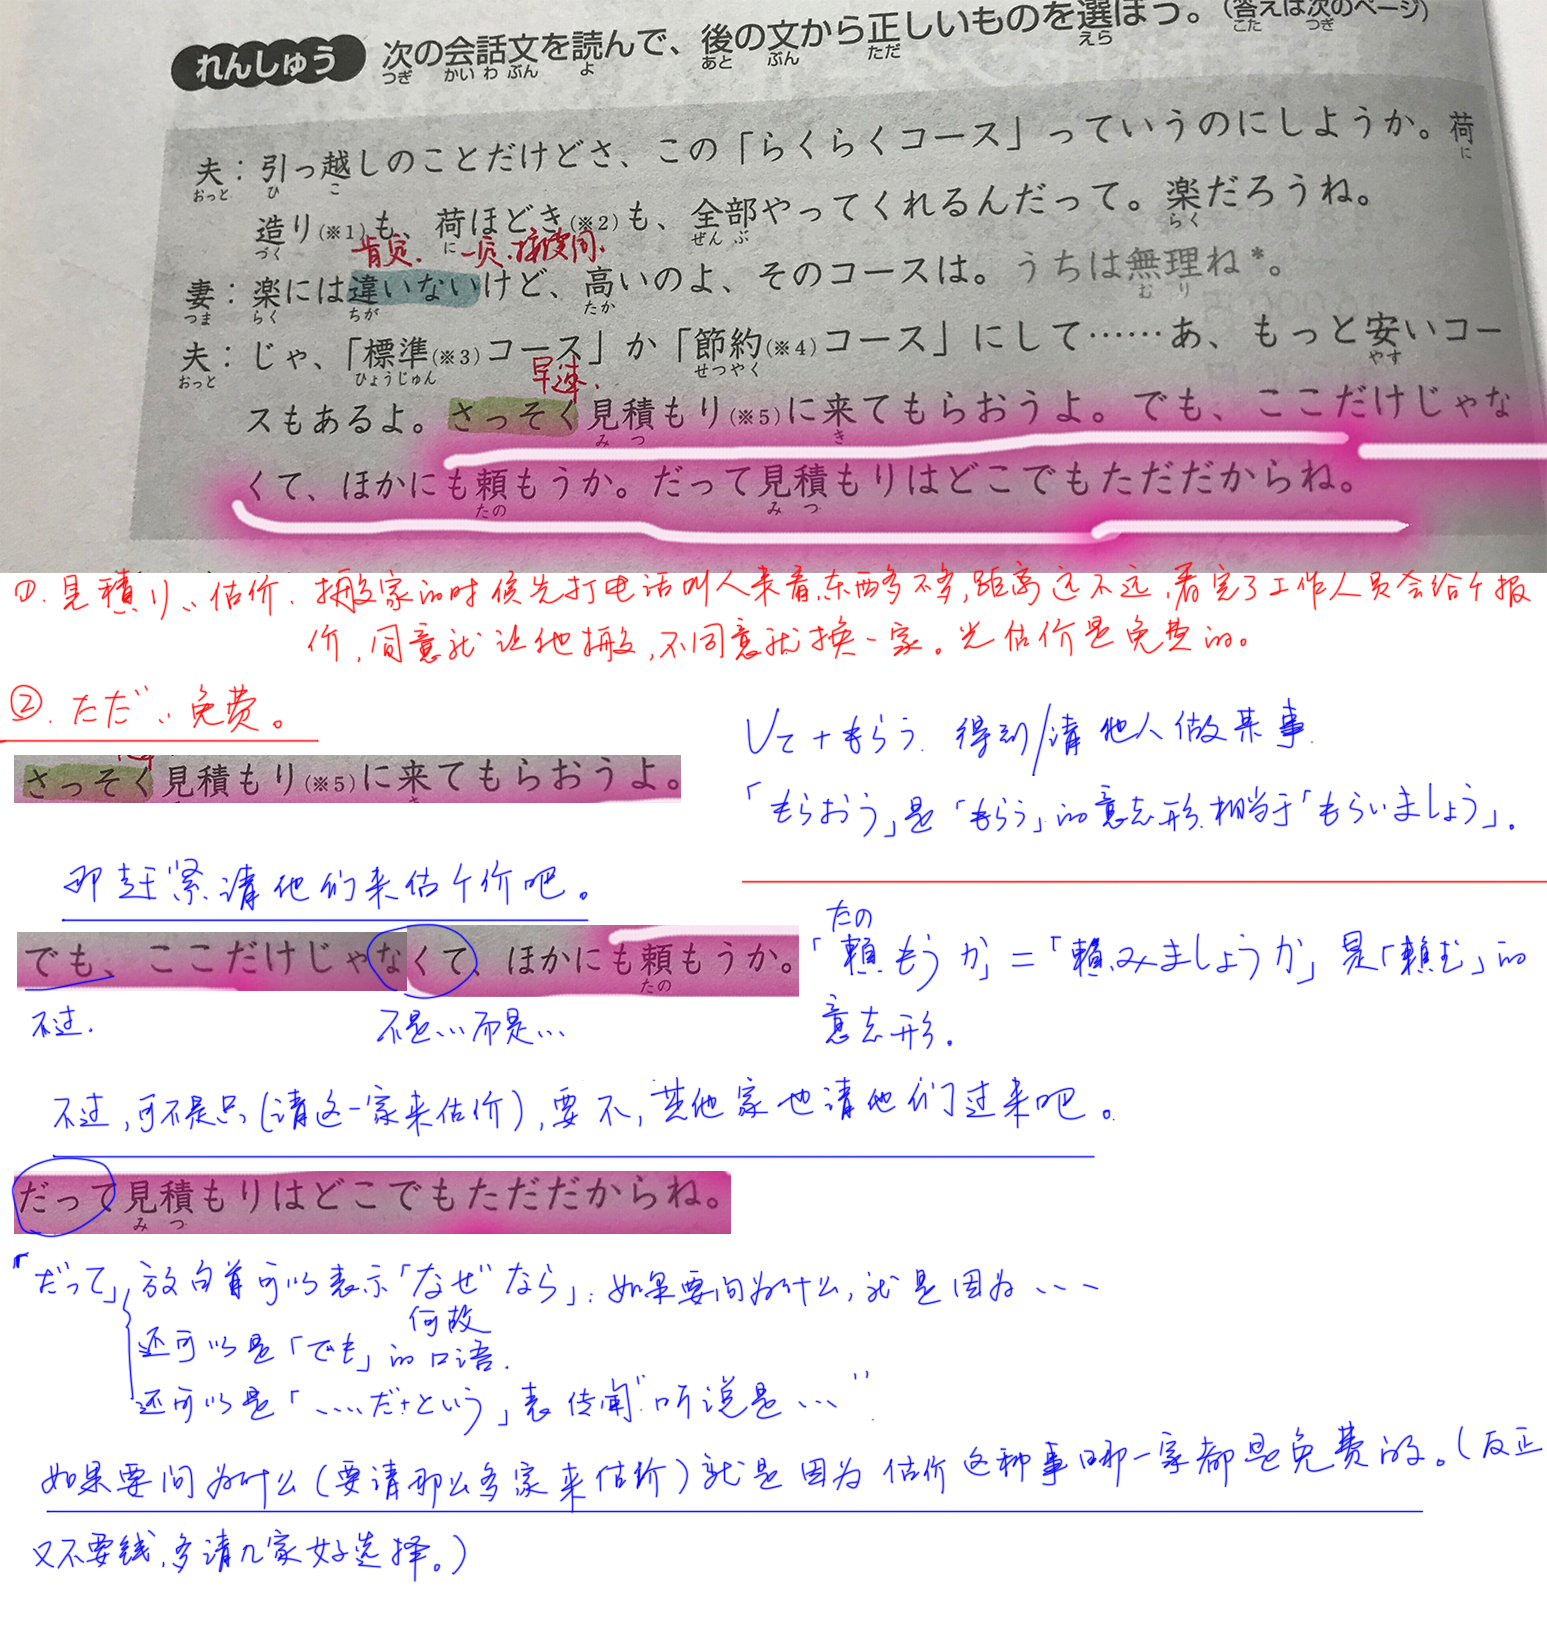 れんしゅう 次の会話文を読んで、後の文から正しいものを選ぼう。(答えは次のページ)
つぎ かいわぶん よ あと ぶん ただ えら こた つぎ
夫：引っ越しのことだけどさ、この「らくらくコース」っていうのにしようか。荷
おっと ひ こ に
造り(※1)も、荷ほどき(※2)も、全部やってくれるんだって。楽だろうね。
づく に ぜんぶ らく
肯定.
妻：楽には違いないけど、高いのよ、そのコースは。うちは無理ね*。
つま らく ちが たか むり
夫：じゃ、「標準(※3)コース」か「節約(※4)コース」にして……あ、もっと安いコー
おっと ひょうじゅん せつやく やす
早速.
スもあるよ。さっそく見積もり(※5)に来てもらおうよ。でも、ここだけじゃな
みつ き
くて、ほかにも頼もうか。だって見積もりはどこでもただだからね。
たの みつ
①.見積り:估价.搬家的时候先打电话叫人来看,东西多不多,距离远不远,看完了工作人员会给个报
价,同意就让他搬,不同意就换一家。光估价是免费的。
②.ただ:免费。
さっそく見積もり(※5)に来てもらおうよ。
して+もらう.得到/请他人做某事.
「もらおう」是「もらう」的意志形.相当于「もらいましょう」.
那赶紧请他们来估个价吧。
でも、ここだけじゃなくて、ほかにも頼もうか。
たの
不过.
不是...而是...
たの
「頼もうか」=「頼みましょうか」是「頼む」的
意志形.
不过,可不是只(请这一家来估价),要不,其他家也请他们过来吧。
だって見積もりはどこでもただだからね。
みつ
「だって」,放句首可以表示「なぜなら」:如果要问为什么,就是因为...
何故
还可以是「でも」的口语.
还可以是「....だ+という」表传闻“听说是...”.
如果要问为什么(要请那么多家来估价)就是因为估价这种事哪一家都是免费的。(反正
又不要钱,多请几家好选择。)